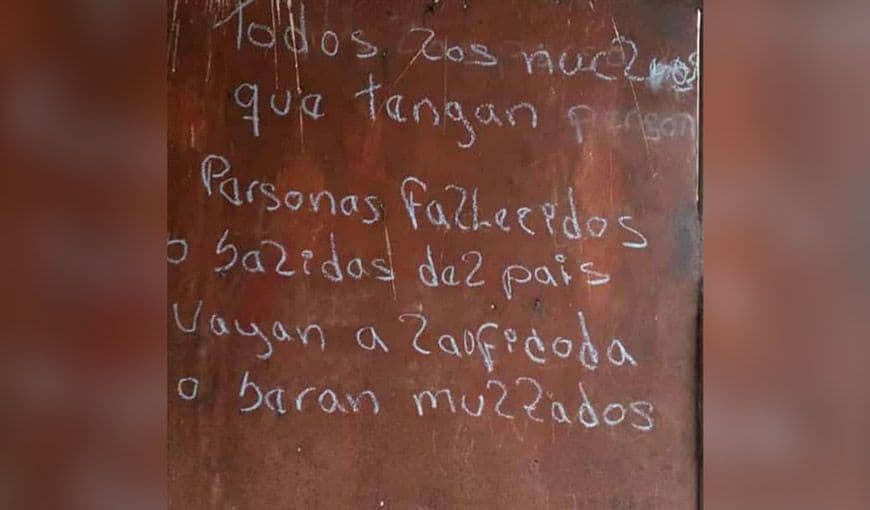 Todos 2os nuc2eos
que tangan person
Parsonas fa2Lecidos
o sa2idas da2 pais
Vayan a 2aofidoda
o saran mu22ados